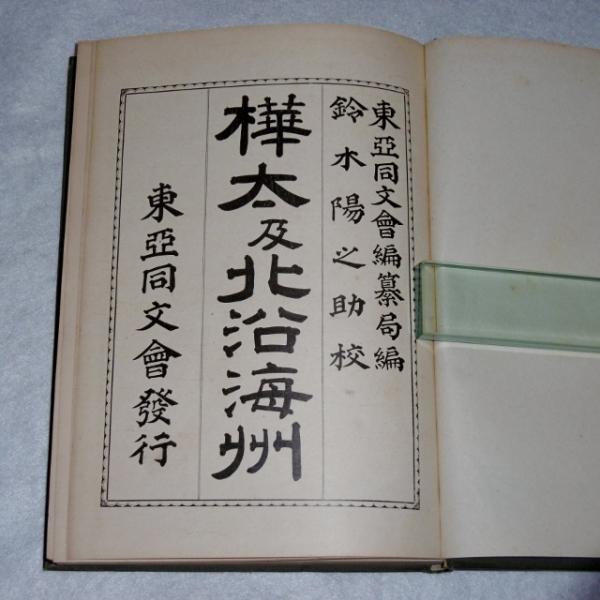 東亞同文會編纂局編
鈴木陽之助校
樺太及北沿海州
東亞同文會發行